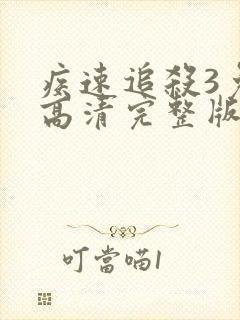 疾速追殺3免
高清完整版
叮當喵1